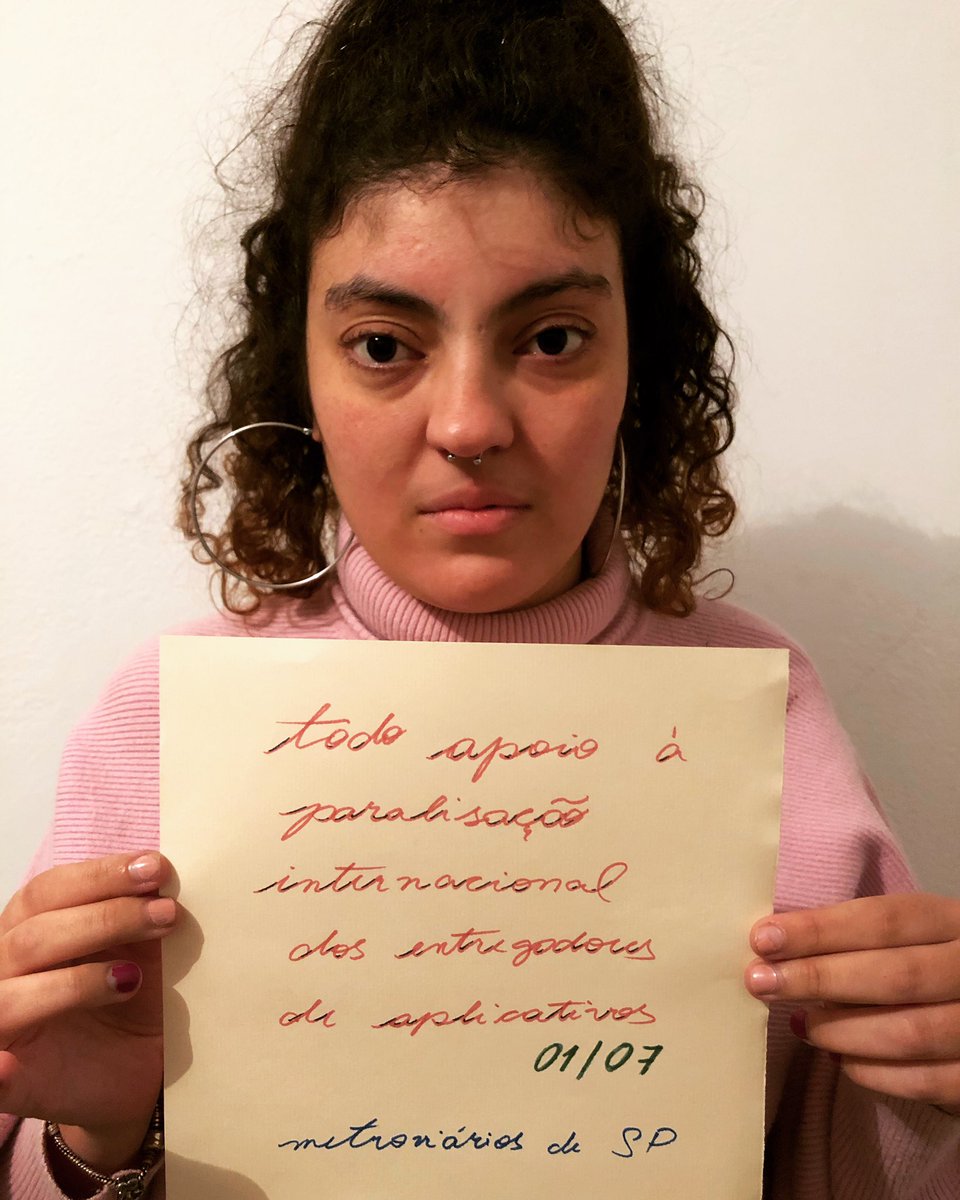 todo apoio à
paralisação
internacional
dos entregadores
de aplicativos
01/07
metroviários de SP